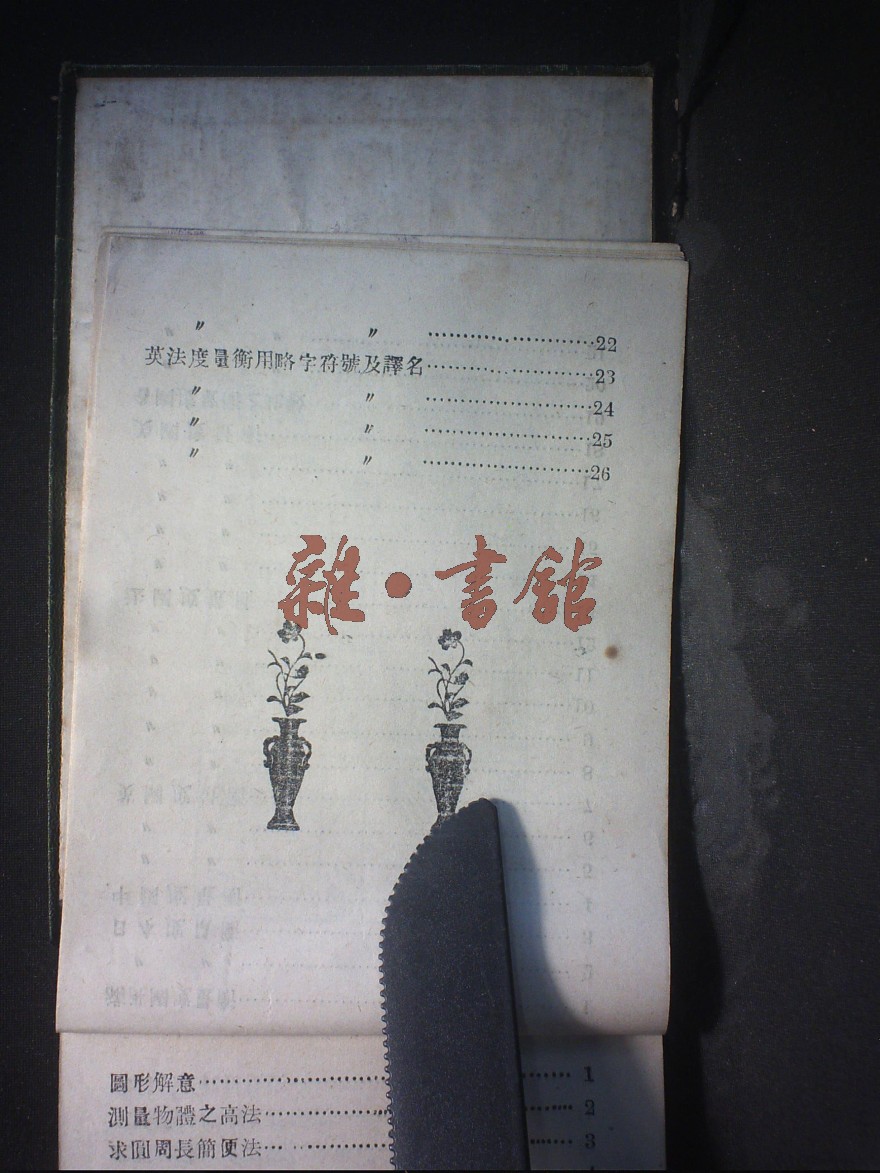 〃 〃 ……………………22
英法度量衡用略字符號及譯名……………………23
〃 〃 ……………………24
〃 〃 ……………………25
〃 〃 ……………………26
雜·書館
圖形解意……………………1
測量物體之高法……………………2
求圓周長簡便法……………………3